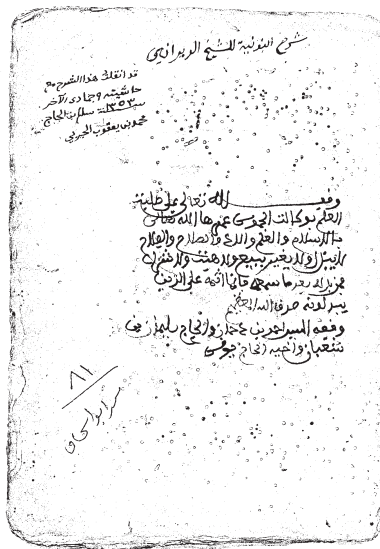 شرح النونية للشيخ الويراني
قد انتقلت هذا الشرح مع
حاشيته وجمادى الآخر
سنة ١٣٥٣ سلم بن الحاج
محمد بن يعقوب الجربي
وقف لله تعالى على طلبة
العلم بوكالة الجاموس عمرها الله تعالى
بالاسلام والعلم والدعاء والصلاح والفلاح
لا يبدل ولا يغير ببيع ولا هبة ولا
فمن بدله بعد ما سمعه فانما اثمه على الذين
يبدلونه صدق الله العظيم
وقفه السيد احمد بن والحاج سليمان بن
شعبان واخيه الحاج موسى
٨١